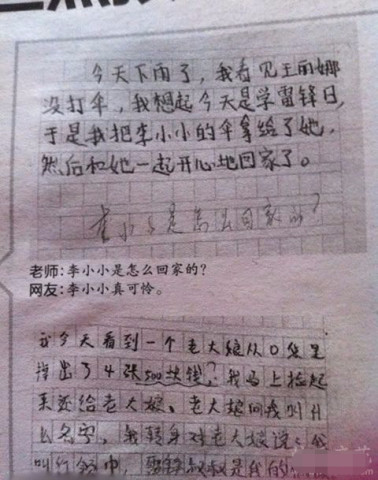 今天下雨了，我看见王丽娜
没打伞，我想起今天是学雷锋日，
于是我把李小小的伞拿给了她，
然后和她一起开心地回家了。
李小小是怎么回家的？
老师：李小小是怎么回家的？
网友：李小小真可怜。
我今天看到一个老大娘从口袋里
掉出了4张500块钱，我马上捡起
来还给老大娘、老大娘问我叫什
么名字，我转身对老大娘说：
叫红领巾，雷锋叔叔是我的